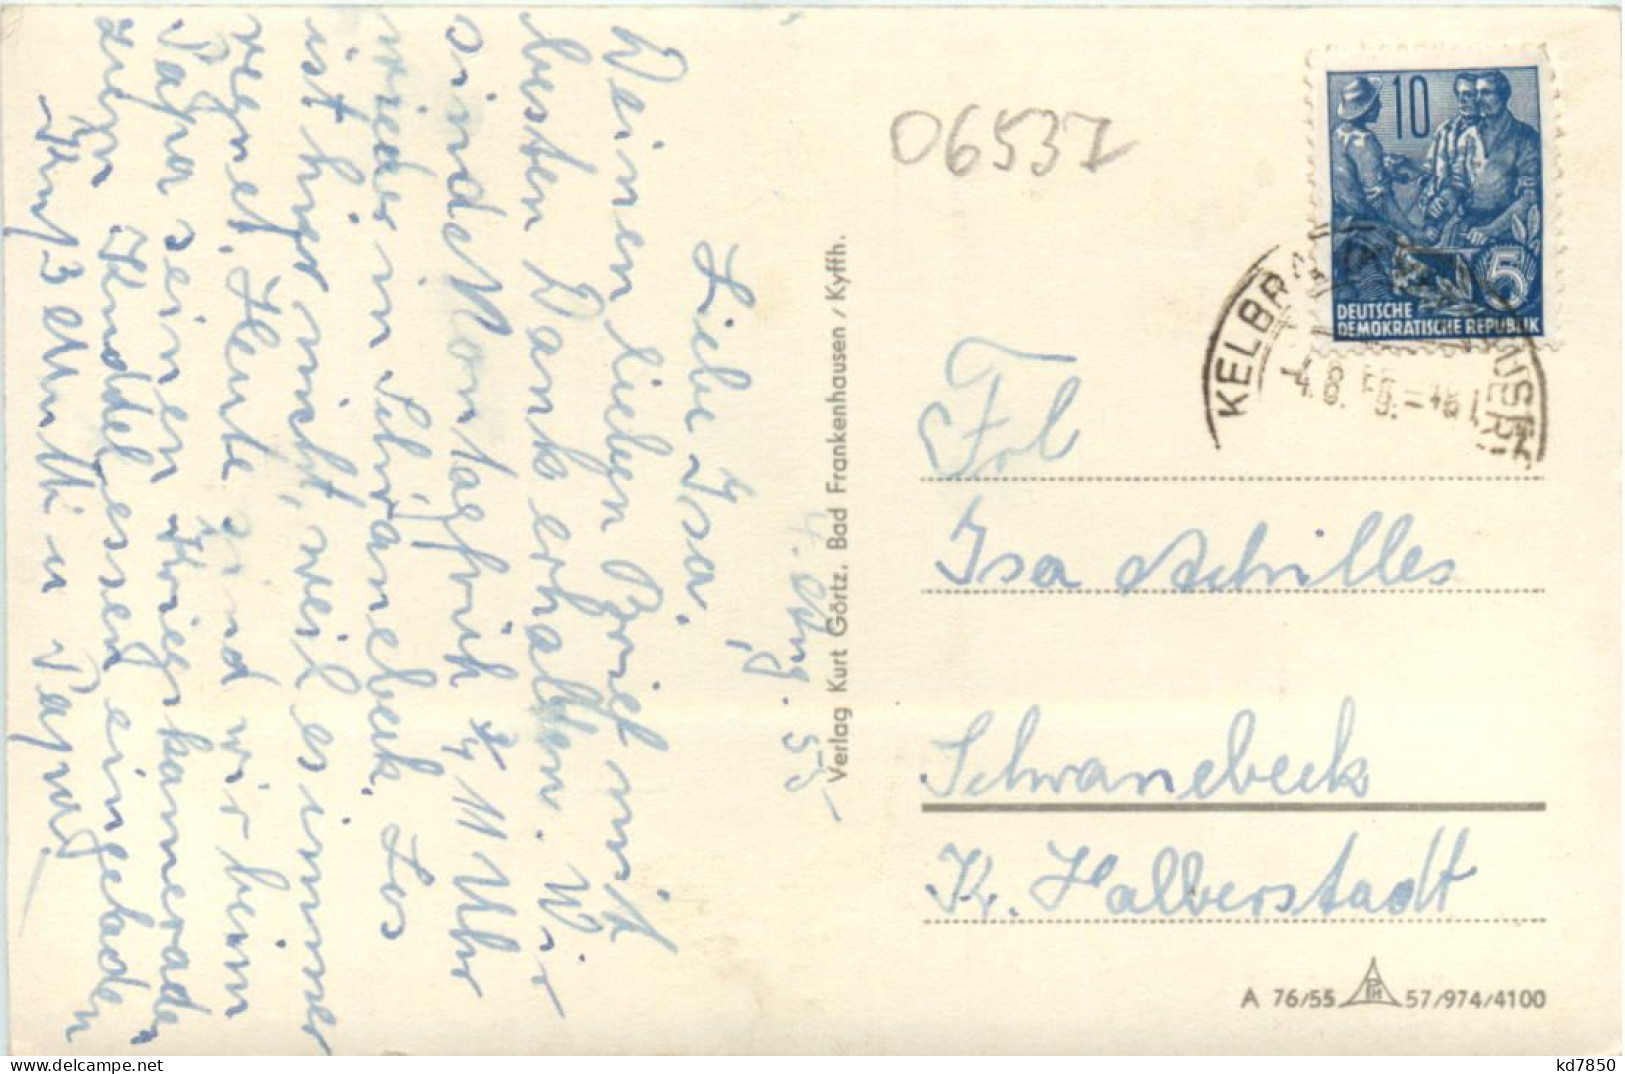 4. Aug. 55
Liebe Isa.
Deinen lieben Brief mit
besten Dank erhalten. Wir
sind Montagfrüh ¾ 11 Uhr
wieder in Schwanebeck. Los
ist hier nicht, weil es immer
regnet. Heute sind wir beim
Papa seinen Kriegskameraden
zum Knüddelessen eingeladen
Gruß Mutti u Papa!
Verlag Kurt Görtz, Bad Frankenhausen / Kyffh.
06537
10
5
DEUTSCHE
DEMOKRATISCHE REPUBLIK
KELBRA
4.8.
Frl
Isa Achilles
Schwanebeck
Kr. Halberstadt
A 76/55 57/974/4100
www.delcampe.net
kd7850